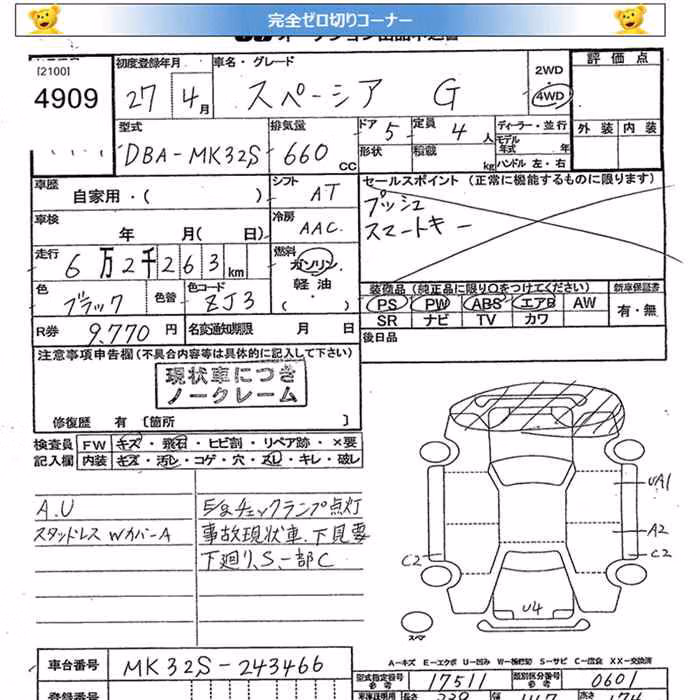 完全ゼロ切りコーナー
[2100]
4909
初度登録年月
27 4月
車名・グレード
スペーシア G
2WD
・
4WD
評価点
外装 内装
型式
DBA-MK32S
排気量
660 CC
ドア 5
形状
定員 4 人
積載 kg
ディーラー・並行
モデル
年式 年
ハンドル 左・右
車歴
自家用・( )
シフト
AT
車検
年 月( 日)
冷房
AAC
走行
6万2千263km
燃料
ガソリン
軽油
( )
色
ブラック
色替
色コード
ZJ3
R券 9,770 円
名変通知期限 月 日
セールスポイント (正常に機能するものに限ります)
プッシュ
スマートキー
装備品 (純正品に限り○をつけてください)
新車保証書
PS PW ABS エアB AW
SR ナビ TV カワ
有・無
後日品
注意事項申告欄(不具合内容等は具体的に記入して下さい)
現状車につき
ノークレーム
修復歴 有 〔箇所 〕
検査員
記入欄
FW キズ・飛石・ヒビ割・リペア跡・×要
内装 キズ・汚レ・コゲ・穴・スレ・キレ・破レ
A.U
スタッドレス WカバーA
チェックランプ点灯
事故現状車、下見要
下廻り、S、一部C
UA1
A2
C2
C2
U4
スペア
A-キズ E-エクボ U-凹み W-補修跡 S-サビ C-腐食 XX-交換済
車台番号 MK32S-243466
型式指定番号
参考
17511
類別区分番号
参考
0601
登録番号
長さ